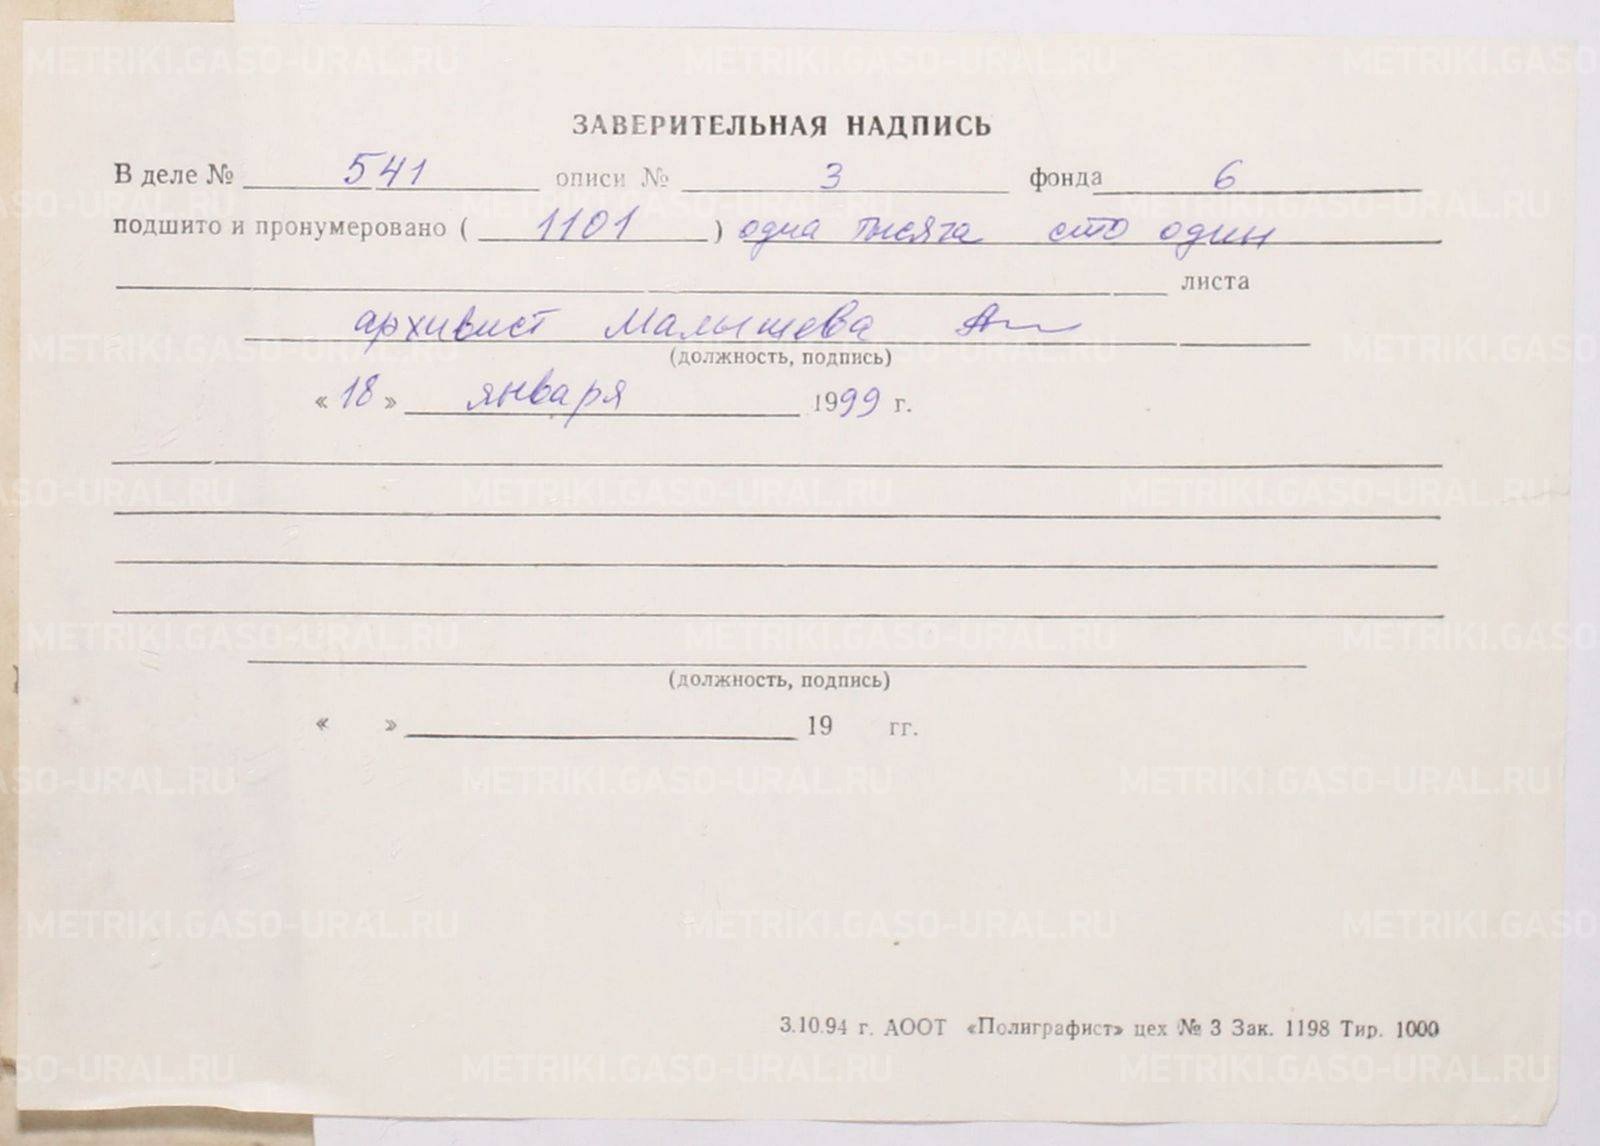 ЗАВЕРИТЕЛЬНАЯ НАДПИСЬ
В деле № 541 описи № 3 фонда 6
подшито и пронумеровано ( 1101 ) одна тысяча сто один
листа
архивист Малышева
(должность, подпись)
« 18 » января 1999 г.
(должность, подпись)
« » 19 гг.
3.10.94 г. АООТ «Полиграфист» цех № 3 Зак. 1198 Тир. 1000
METRIKI.GASO-URAL.RU